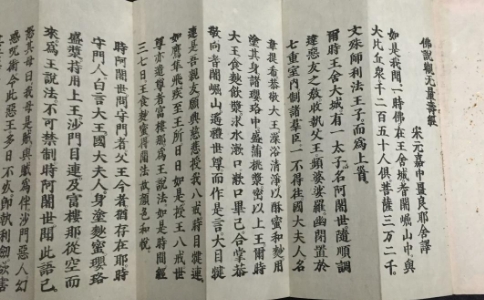 佛說觀无量壽經
宋元嘉中畺良耶舍譯
如是我聞一時佛在王舍城耆闍崛山中與
大比丘衆千二百五十人俱菩薩三万二千
文殊師利法王子而為上首
爾時王舍大城有一太子名阿闍世隨順調
達惡友之教收執父王頻婆娑羅幽閉置於
七重室內制諸羣臣一不得往國大夫人名
韋提希恭敬大王澡浴清淨以酥蜜和麨用
塗其身諸瓔珞中盛蒲桃漿密以上王爾時
大王食麨飲漿求水漱口漱口畢已合掌恭
敬向耆闍崛山遙禮世尊而作是言大目犍
連是吾親友願興慈悲授我八戒時目犍連
如鷹隼飛疾至王所日日如是授王八戒世
尊亦遣尊者富樓那為王說法如是時間經
三七日王食麨蜜得聞法故顏色和悅
時阿闍世問守門者父王今者猶存在耶時
守門人白言大王國大夫人身塗麨蜜瓔珞
盛漿持用上王沙門目連及富樓那從空而
來為王說法不可禁制時阿闍世聞此語已
怒其母曰我母是賊與賊為伴沙門惡人幻
惑呪術令此惡王多日不死即執利劍欲害